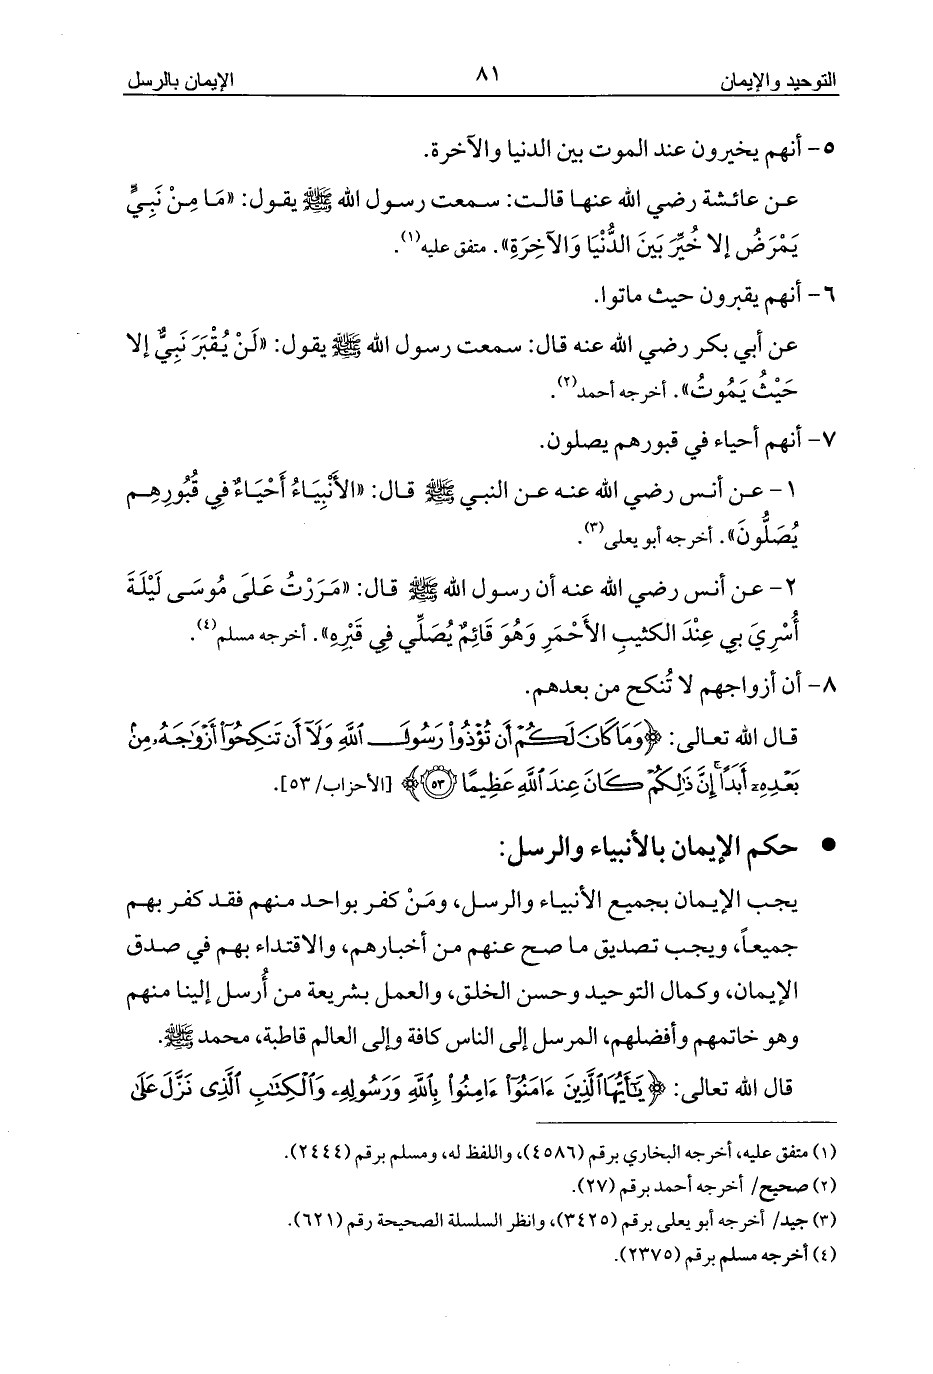 التوحيد والإيمان ٨١ الإيمان بالرسل
٥- أنهم يخيرون عند الموت بين الدنيا والآخرة.
عن عائشة رضي الله عنها قالت: سمعت رسول الله ﷺ يقول: «مَا مِنْ نَبِيٍّ
يَمْرَضُ إلا خُيِّرَ بَيْنَ الدُّنْيَا وَالآخِرَةِ». متفق عليه(١).
٦- أنهم يقبرون حيث ماتوا.
عن أبي بكر رضي الله عنه قال: سمعت رسول الله ﷺ يقول: «لَنْ يُقْبَرَ نَبِيٌّ إلا
حَيْثُ يَمُوتُ». أخرجه أحمد(٢).
٧- أنهم أحياء في قبورهم يصلون.
١- عن أنس رضي الله عنه عن النبي ﷺ قال: «الأَنْبِيَاءُ أَحْيَاءٌ فِي قُبُورِهِم
يُصَلُّونَ». أخرجه أبو يعلى(٣).
٢- عن أنس رضي الله عنه أن رسول الله ﷺ قال: «مَرَرْتُ عَلَى مُوسَى لَيْلَةَ
أُسْرِيَ بي عِنْدَ الكثيبِ الأَحْمَرِ وَهُوَ قَائِمٌ يُصَلِّي فِي قَبْرِهِ». أخرجه مسلم(٤).
٨- أن أزواجهم لا تُنكح من بعدهم.
قال الله تعالى: ﴿وَمَا كَانَ لَكُمْ أَن تُؤْذُوا۟ رَسُولَ ٱللَّهِ وَلَآ أَن تَنكِحُوٓا۟ أَزْوَٰجَهُۥ مِنۢ
بَعْدِهِۦٓ أَبَدًا ۚ إِنَّ ذَٰلِكُمْ كَانَ عِندَ ٱللَّهِ عَظِيمًا ٥٣﴾ [الأحزاب/ ٥٣].
● حكم الإيمان بالأنبياء والرسل:
يجب الإيمان بجميع الأنبياء والرسل، ومَنْ كفر بواحد منهم فقد كفر بهم
جميعاً، ويجب تصديق ما صح عنهم من أخبارهم، والاقتداء بهم في صدق
الإيمان، وكمال التوحيد وحسن الخلق، والعمل بشريعة من أُرسل إلينا منهم
وهو خاتمهم وأفضلهم، المرسل إلى الناس كافة وإلى العالم قاطبة، محمد ﷺ.
قال الله تعالى: ﴿يَٰٓأَيُّهَا ٱلَّذِينَ ءَامَنُوٓا۟ ءَامِنُوا۟ بِٱللَّهِ وَرَسُولِهِۦ وَٱلْكِتَٰبِ ٱلَّذِى نَزَّلَ عَلَىٰ
(١) متفق عليه، أخرجه البخاري برقم (٤٥٨٦)، واللفظ له، ومسلم برقم (٢٤٤٤).
(٢) صحيح/ أخرجه أحمد برقم (٢٧).
(٣) جيد/ أخرجه أبو يعلى برقم (٣٤٢٥)، وانظر السلسلة الصحيحة رقم (٦٢١).
(٤) أخرجه مسلم برقم (٢٣٧٥).